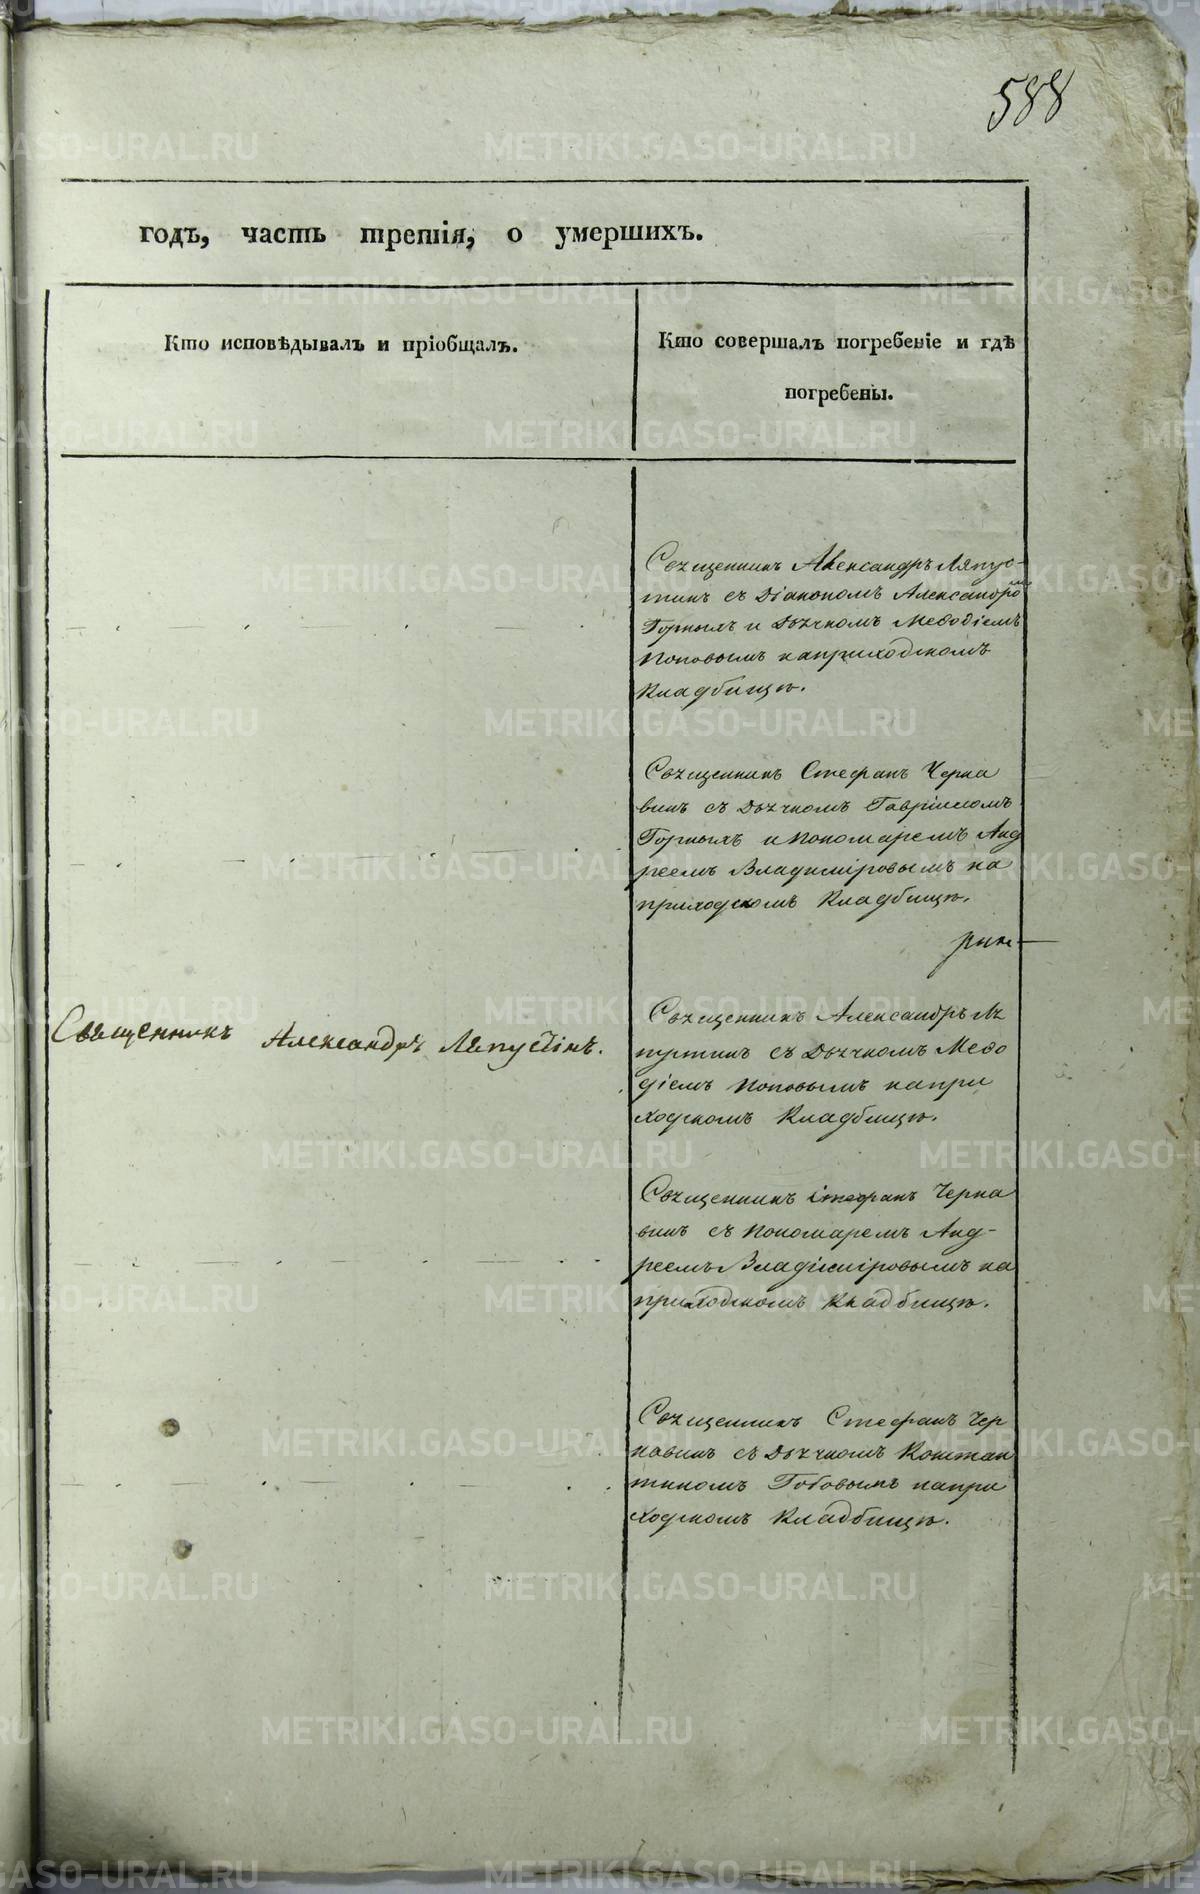 588
годъ, часть третія, о умершихъ.
Кто исповѣдывалъ и пріобщалъ.
Кто совершалъ погребеніе и гдѣ
погребены.
Священникъ Александръ Ляпус-
тинъ съ Діакономъ Александро
Горныхъ и Дьячкомъ Меѳодіемъ
Поповымъ на приходскомъ
Кладбищѣ.
Священникъ Стефанъ Черна
винъ съ Дьячкомъ Гавріиломъ
Горныхъ и Пономаремъ Анд
реемъ Владиміровымъ на
приходскомъ Кладбищѣ.
Священникъ Александръ Ляпустинъ.
Священникъ Александръ Ля
пустинъ съ Дьячкомъ Меѳо
діемъ Поповымъ на при
ходскомъ Кладбищѣ.
Священникъ Стефанъ Черна
винъ съ Пономаремъ Анд-
реемъ Владиміровымъ на
приходскомъ Кладбищѣ.
Священникъ Стефанъ Чер
навинъ съ Дьячкомъ Констан
тиномъ на при
ходскомъ Кладбищѣ.
METRIKI.GASO-URAL.RU